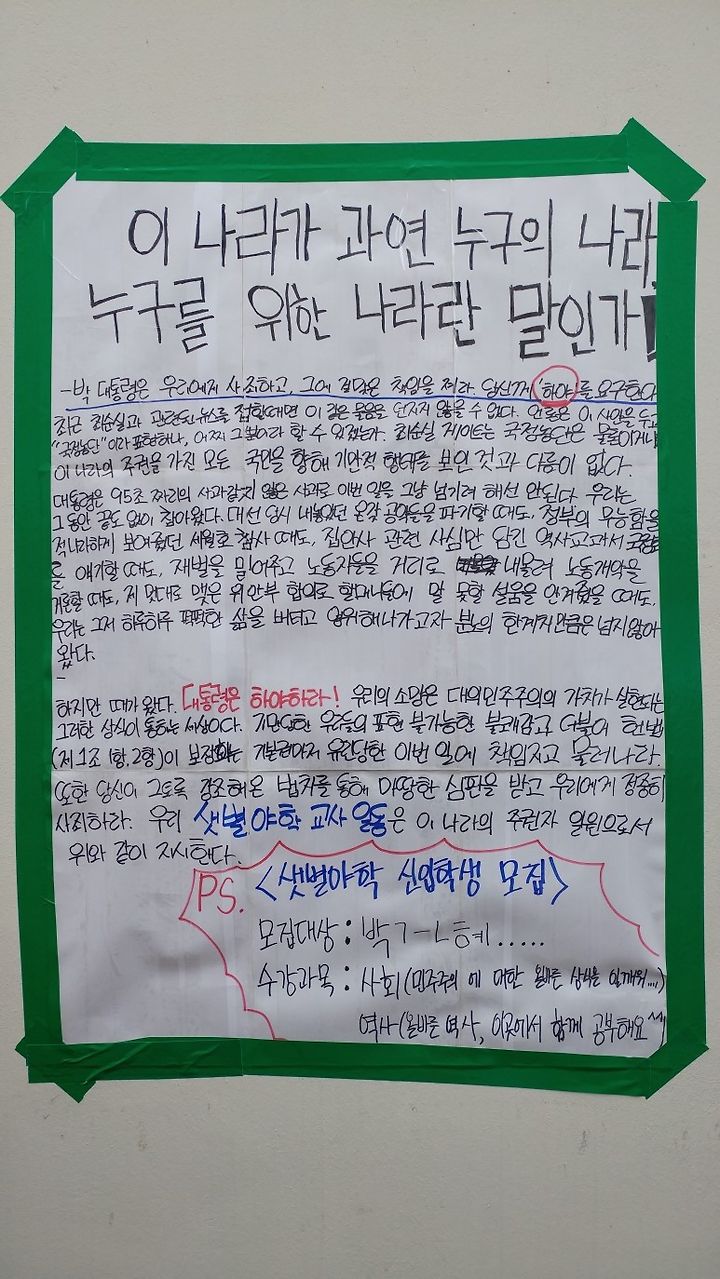 이 나라가 과연 누구의 나라
누구를 위한 나라란 말인가!
- 박 대통령은 우리에게 사죄하고, 그에 걸맞은 책임을 져라. 당신께 '하야'를 요구한다
최근 최순실과 관련된 뉴스를 접할때면 이 같은 물음을 던지지 않을 수 없다. 언론은 이 사안을 두고
"국정농단"이라 표현하나, 어찌 그뿐이라 할 수 있겠는가. 최순실 게이트는 국정농단은 물론이거니와
이 나라의 주권을 가진 모든 국민을 향해 기만적 행태를 보인 것과 다름이 없다.
대통령은 95초 짜리의 사과같지 않은 사과로 이번 일을 그냥 넘기려 해선 안된다. 우리는
그동안 끝도 없이 참아왔다. 대선 당시 내놓았던 온갖 공약들을 파기할 때도, 정부의 무능함을
적나라하게 보여줬던 세월호 참사 때도, 집안사 관련 사심만 담긴 역사교과서 국정화
를 얘기할 때도, 재벌을 밀어주고 노동자들을 거리로 내몰려 노동개악을
거론할 때도, 제 맘대로 맺은 위안부 합의로 할머니들에 말 못할 설움을 안겨줬을 때도,
우리는 그저 하루하루 팍팍한 삶을 버티고 영위해나가고자 분노의 한계치만큼은 넘지 않아
왔다.
-
하지만 때가 왔다. 대통령은 하야하라! 우리의 소망은 대의민주주의의 가치가 실현되는
그러한 상식이 통하는 세상이다. 기만당한 우리들의 표현 불가능한 불쾌감과 더불어 헌법
(제1조 1항, 2항)이 보장하는 기본권마저 유린당한 이번 일에 책임지고 물러나라.
또한 당신이 그토록 강조해온 법치를 통해 마땅한 심판을 받고 우리에게 정중히
사죄하라. 우리 샛별야학 교사 일동은 이 나라의 주권자 일원으로서
위와 같이 지시한다.
PS. <샛별야학 신입학생 모집>
모집대상 : 박ㄱㅡㄴ혜.....
수강과목 : 사회(민주주의에 대한 올바른 상식을 일깨워....)
역사(올바른 역사, 이곳에서 함께 공부해요^^)